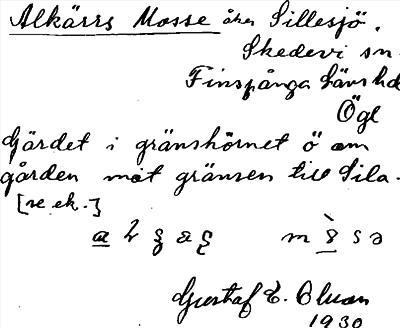 Alkärrs Mosse åker Sillesjö.
Skedevi sn.
Finspånga läns hd
Ögl
Gärdet i gränshörnet ö om
gården mot gränsen till Sila.
[se ek.]
Gustaf E. Oluan
1930